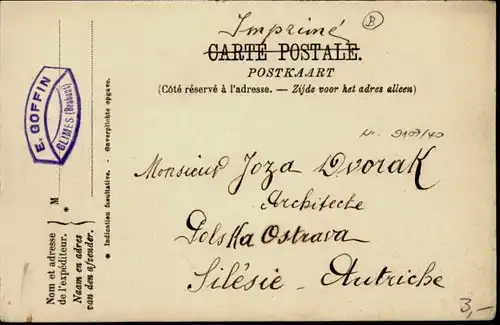 Imprimé
B
CARTE POSTALE.
POSTKAART
(Côté réservé à l'adresse. — Zijde voor het adres alleen)
Monsieur Joza Dvorak
Architecte
Polska Ostrava
Silésie - Autriche
3,-
E. GOFFIN
GLIMES (Brabant)
M *
Nom et adresse
de l'expéditeur.
Naam en adres
van den afzender.
* Indication facultative. - Onverplichte opgave.